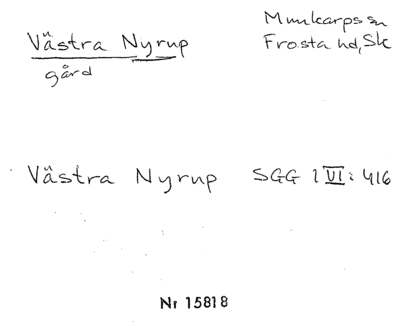 Västra Nyrup
gård
Munkarps sn
Frosta hd, Sk
Västra Nyrup SGG 1 VI: 416
Nr 15818